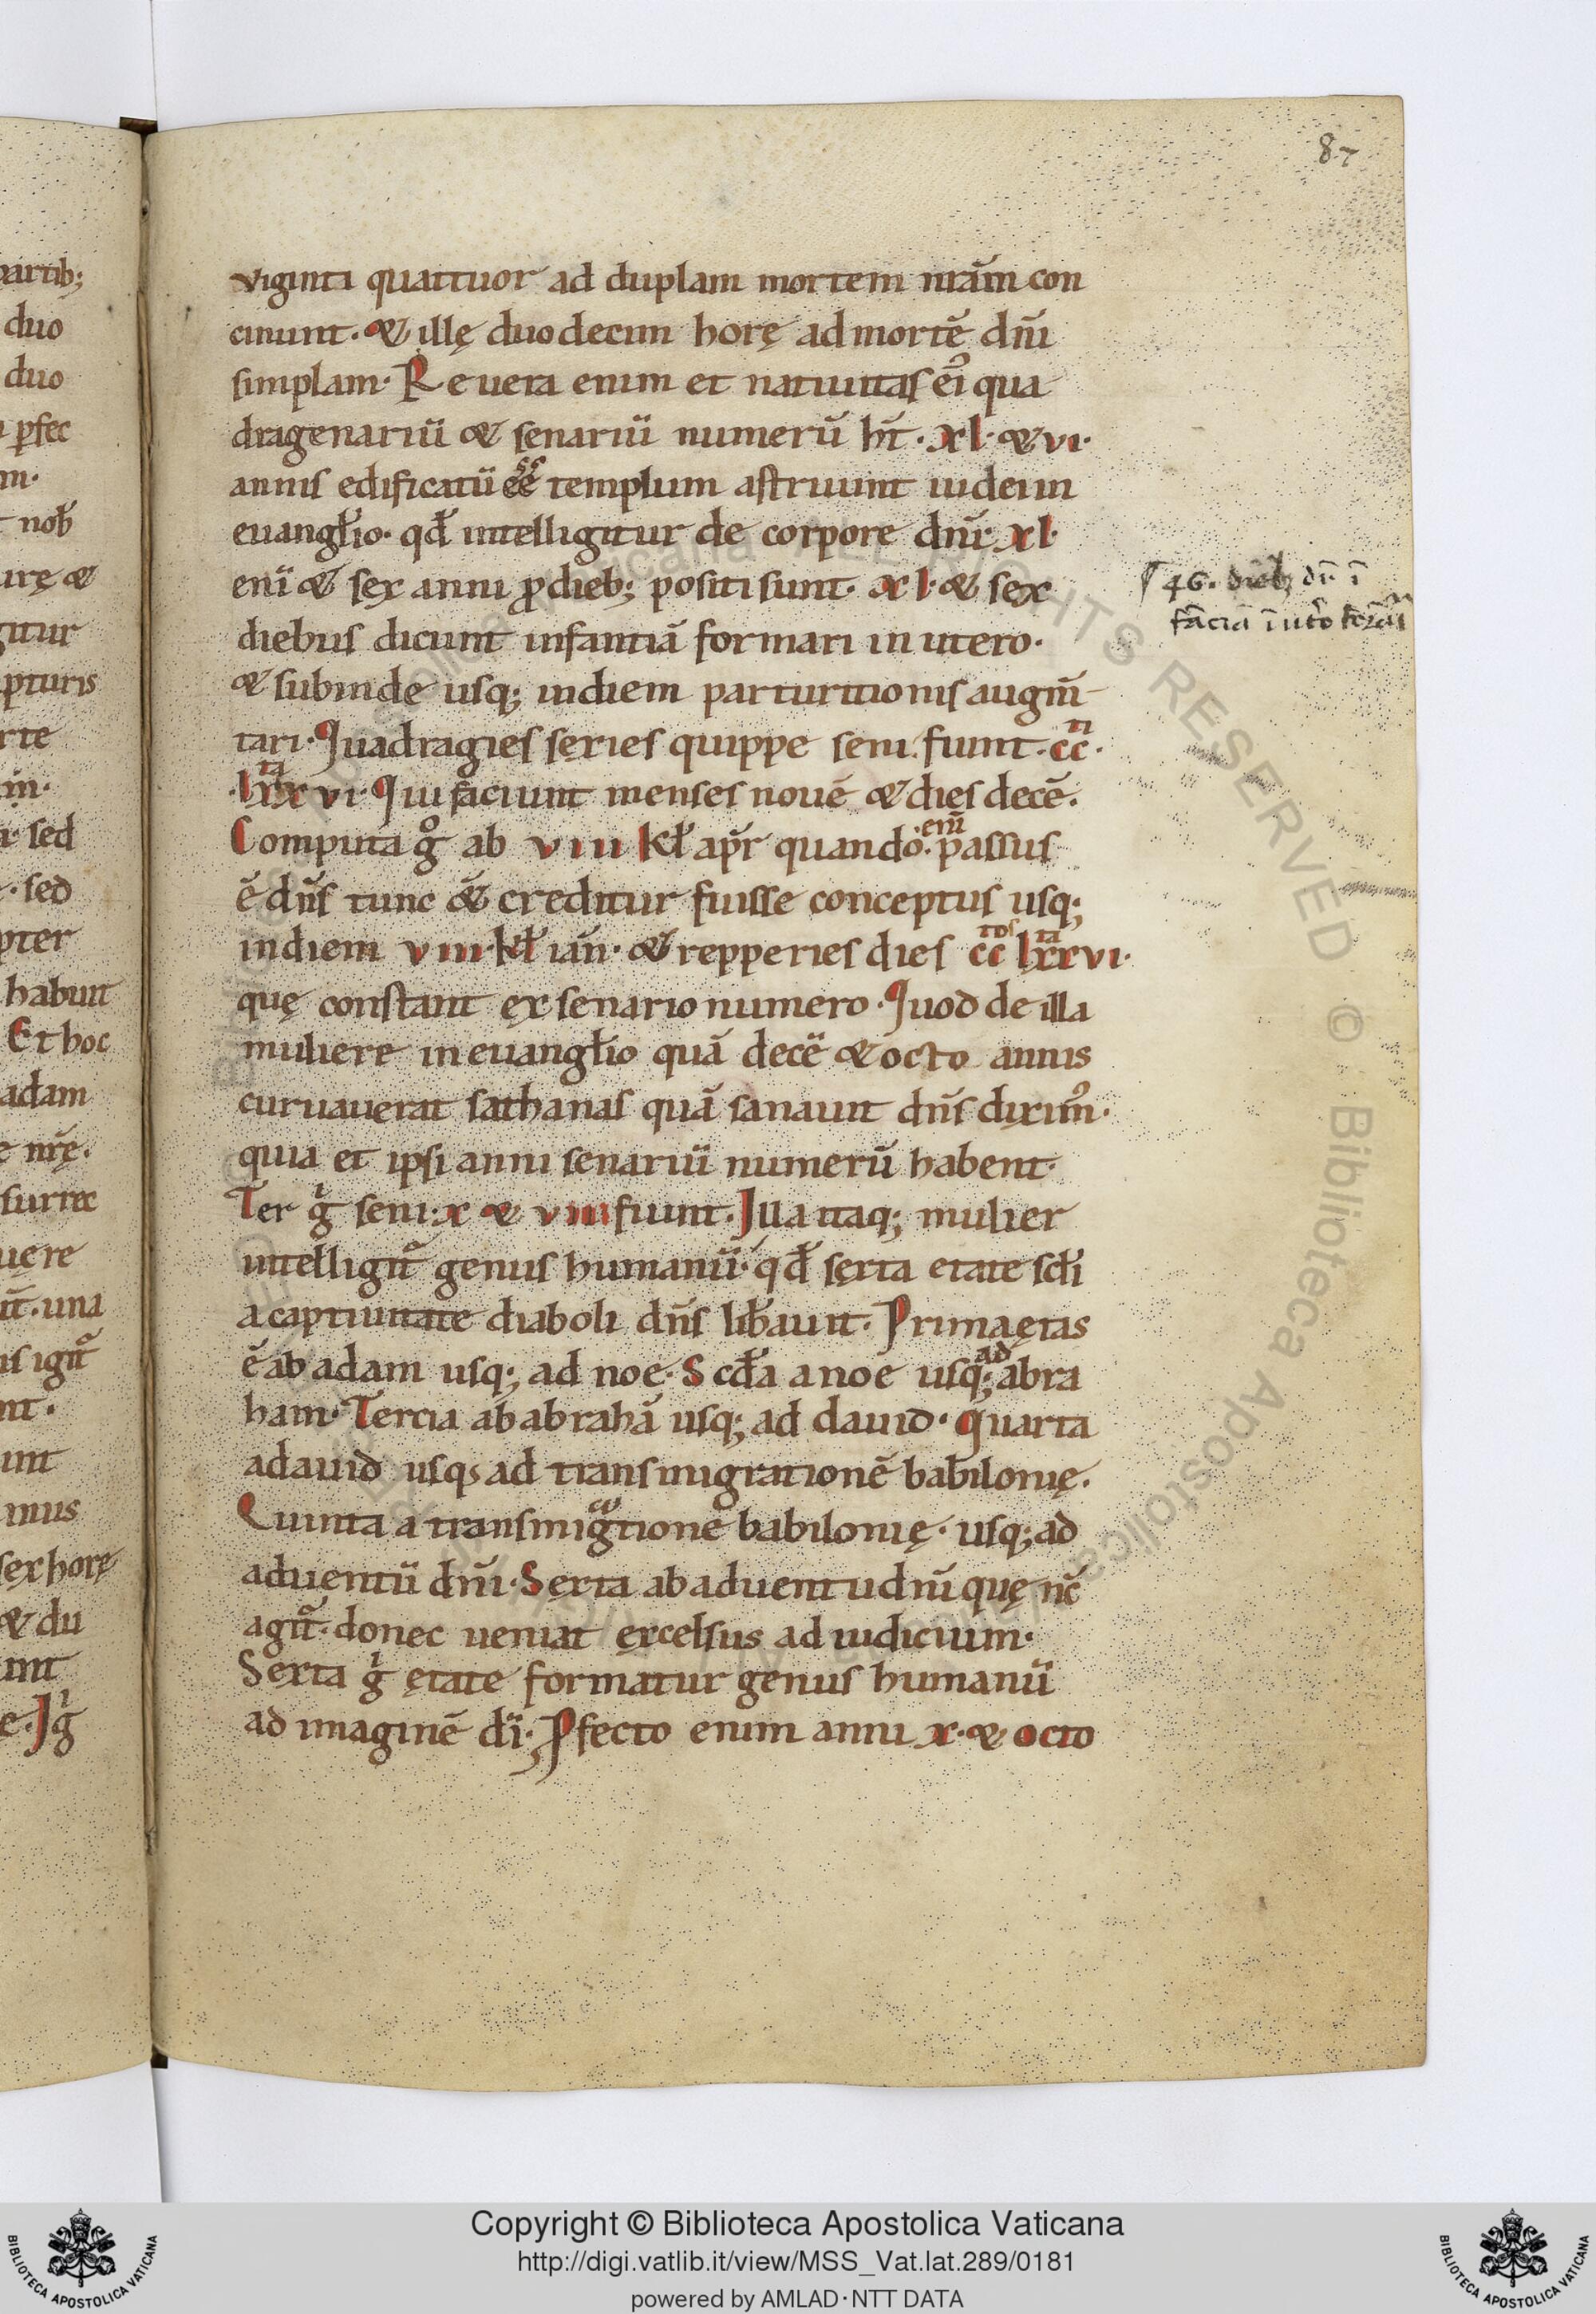 87
partib;
duo
duo
ꝑfec
m.
nob̄
urę &
gitur
pturis
rte
m.
i. sed
. sed
pter
habunt
Et hoc
adam
e nr̄ę.
surrec
uere
una
is igit᷒
nt.
unt
mus
sex horę
& du
unt
e. Ig̍
viginti quattuor ad duplam mortem nr̄am con
cinunt. & illę duodecim horę ad mortē dn̄i
simplam. Re uera enim et natiuitas ei᷒ qua
dragenariū & senariū numerū ht̄. xl. & vi.
annis edificatū ee͞ templum astruunt iudei in
euangł̄io. qd̄ intelligitur de corpore dn̄i. xl.
eni̅ & sex anni ꝓ dieb; positi sunt. xl. & sex
diebus dicunt infantiā formari in utero.
& subinde usq; in diem parturitionis augm̄
tari. Quadragies sęxies quippe seni. fiunt. cc^ti.
.lxx^ta vi. Qui faciunt menses nouē & dies decē.
Computa g° ab viii kł apr̄ quando. eni̅. passus
ē dn̄s tunc & creditur fuisse conceptus usq;
in diem viii. kł ian̄. & repperies dies cc^tos lxx^ta vi.
quę constant ex senario numero. Quod de illa
muliere in euangł̄io quā decē & octo annis
curuauerat sathanas quā sanauit dn̄s dixim᷒.
quia et ipsi anni senariū numerū habent.
Ter g̍ seni. x & viii fiunt. Illa itaq; mulier
intelligit᷒ genus humanū. qd̄ sexta etate scł̄i
a captiuitate diaboli dn̄s lib̄auit. Prima ętas
ē ab adam usq; ad noe. Scd̄a a noe usq; ad abra
ham. Tercia ab abrahā usq; ad dauid. Quarta
a dauid usq; ad transmigrationē babilonię.
Quinta a transmig^ationē babilonię. usq; ad
aduentū dn̄i. Sexta ab aduentu dn̄i quę nc̄
agit᷒. donec ueniat excelsus ad iudicium.
Sexta g̍ ętate formatur genus humanū
ad imaginē dī. Pfecto enim anni x. & octo
46. dieb; dr̄ ī
Copyright © Biblioteca Apostolica Vaticana
http://digi.vatlib.it/view/MSS_Vat.lat.289/0181
powered by AMLAD·NTT DATA
BIBLIOTECA APOSTOLICA VATICANA
BIBLIOTECA APOSTOLICA VATICANA